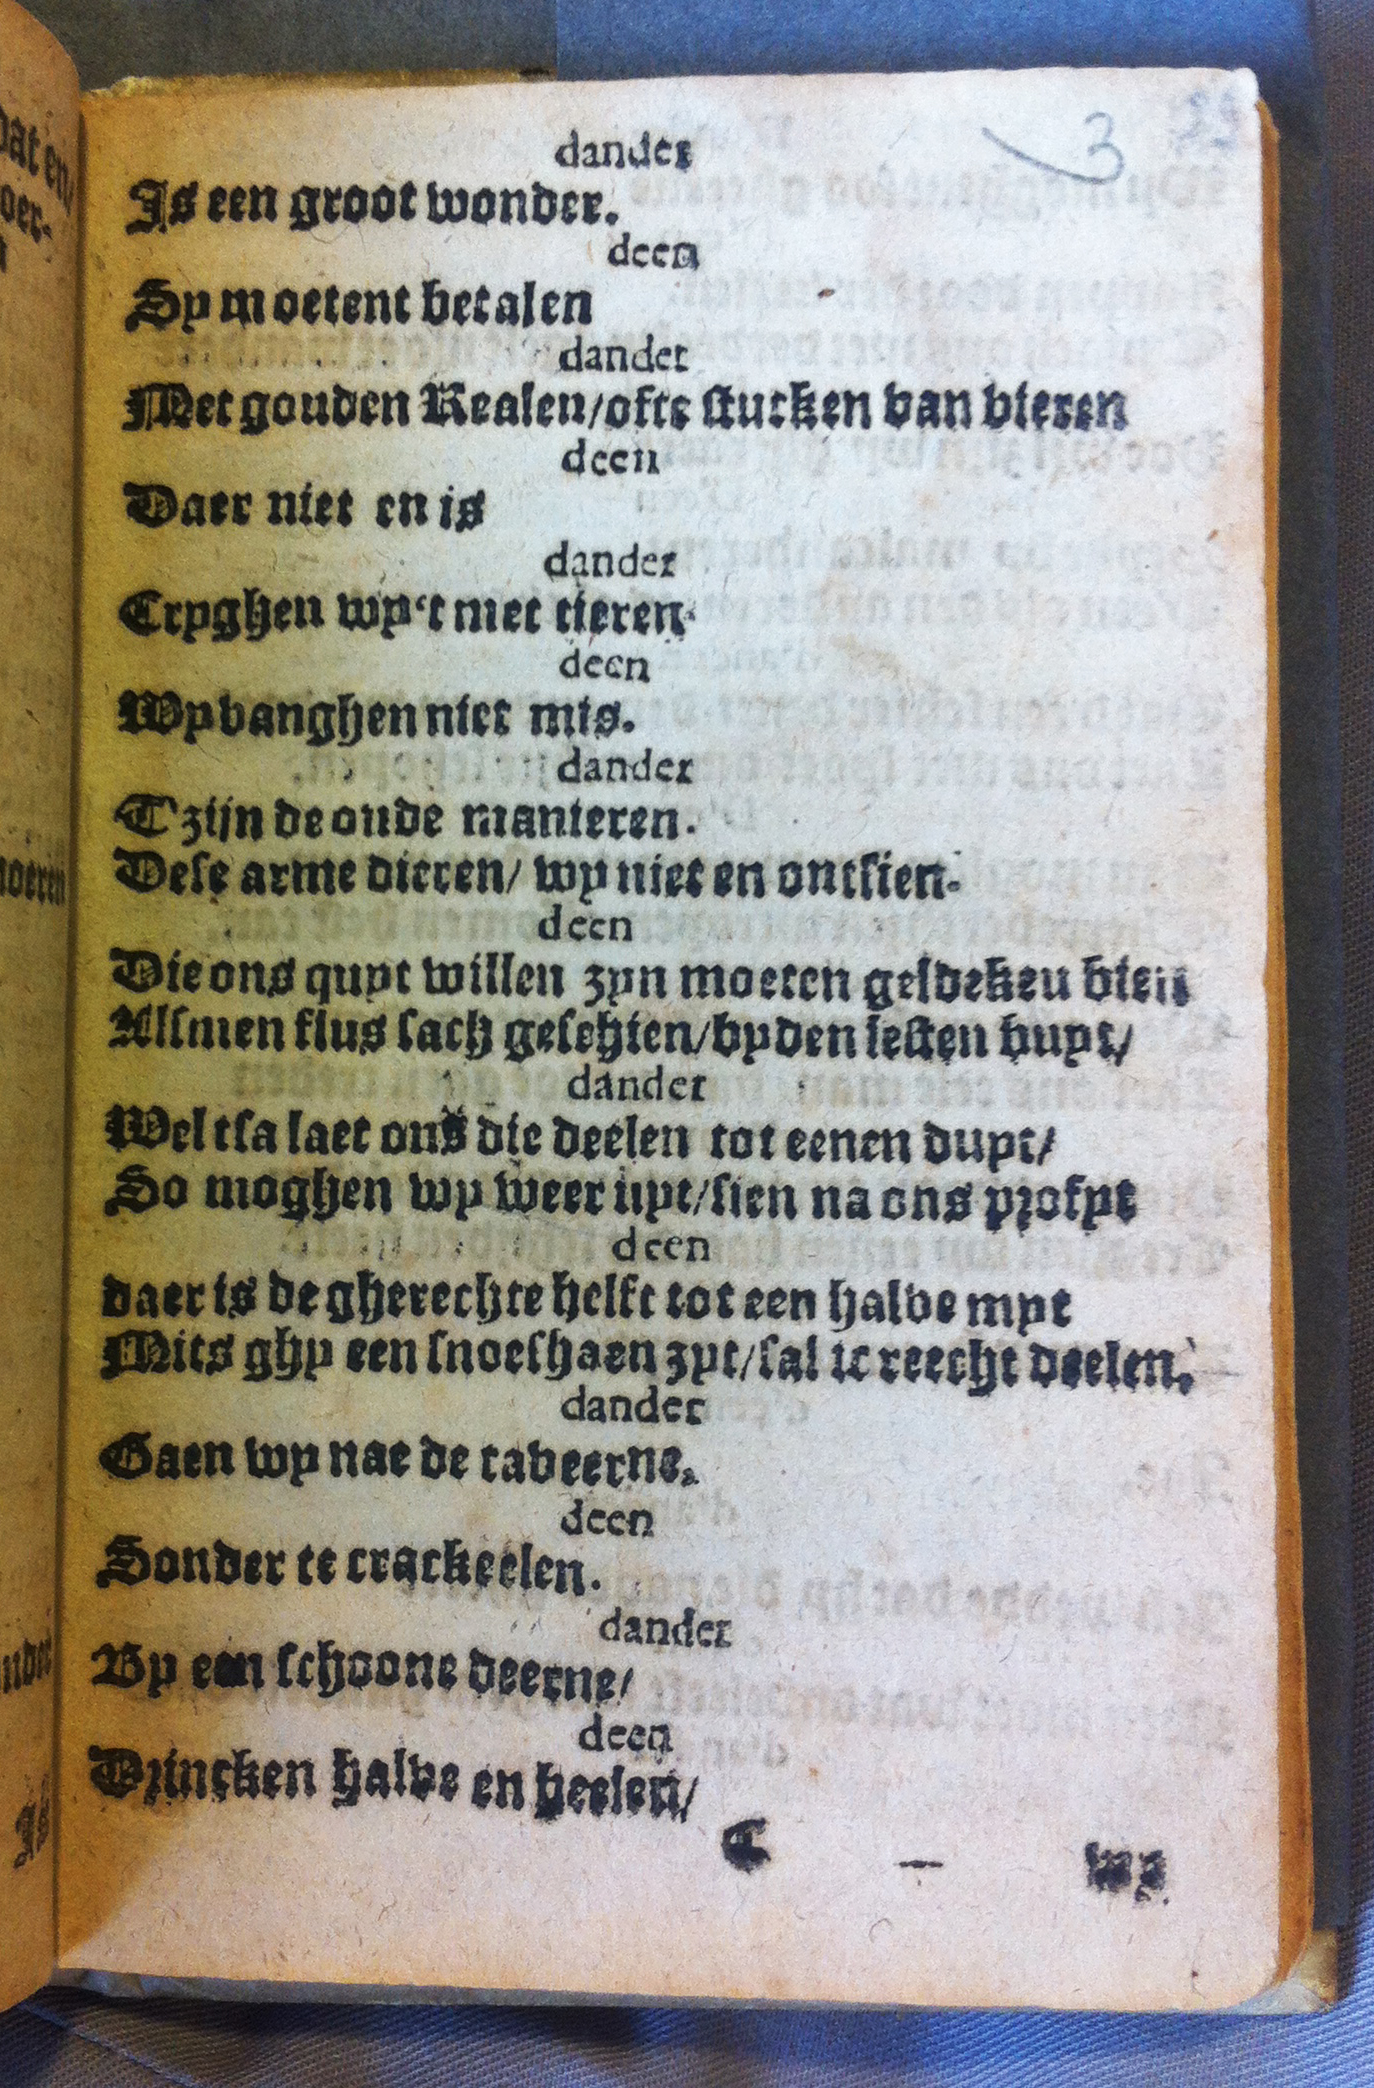 3
dander
Is een groot wonder.
deen
Sy moetent betalen
dander
Met gouden Realen/ofte stucken van vieren
deen
Daer niet en is
dander
Cryghen wy't met tieren
deen
Wy vanghen niet mis.
dander
T'zijn de oude manieren.
Dese arme dieren/ wy niet en ontsien.
deen
Die ons quyt willen zyn moeten geldeken bien
Alsmen flus sach geschien/by den lesten buyt/
dander
Wel tsa laet ons die deelen tot eenen duyt/
So moghen wy weer uyt/sien na ons profyt
deen
daer is de gherechte helft tot een halve myt
Mits ghy een snoeshaen zyt/sal ic reecht deelen.
dander
Gaen wy nae de taveerne,
deen
Sonder te crackeelen.
dander
By een schoone deerne/
deen
Drincken halve en heelen/
C
wy